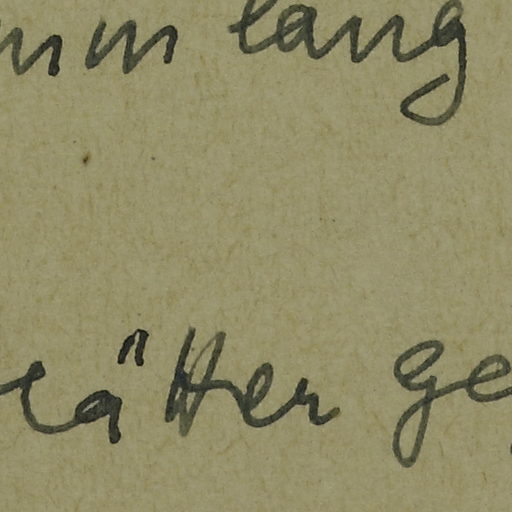 mm lang
lätter ge